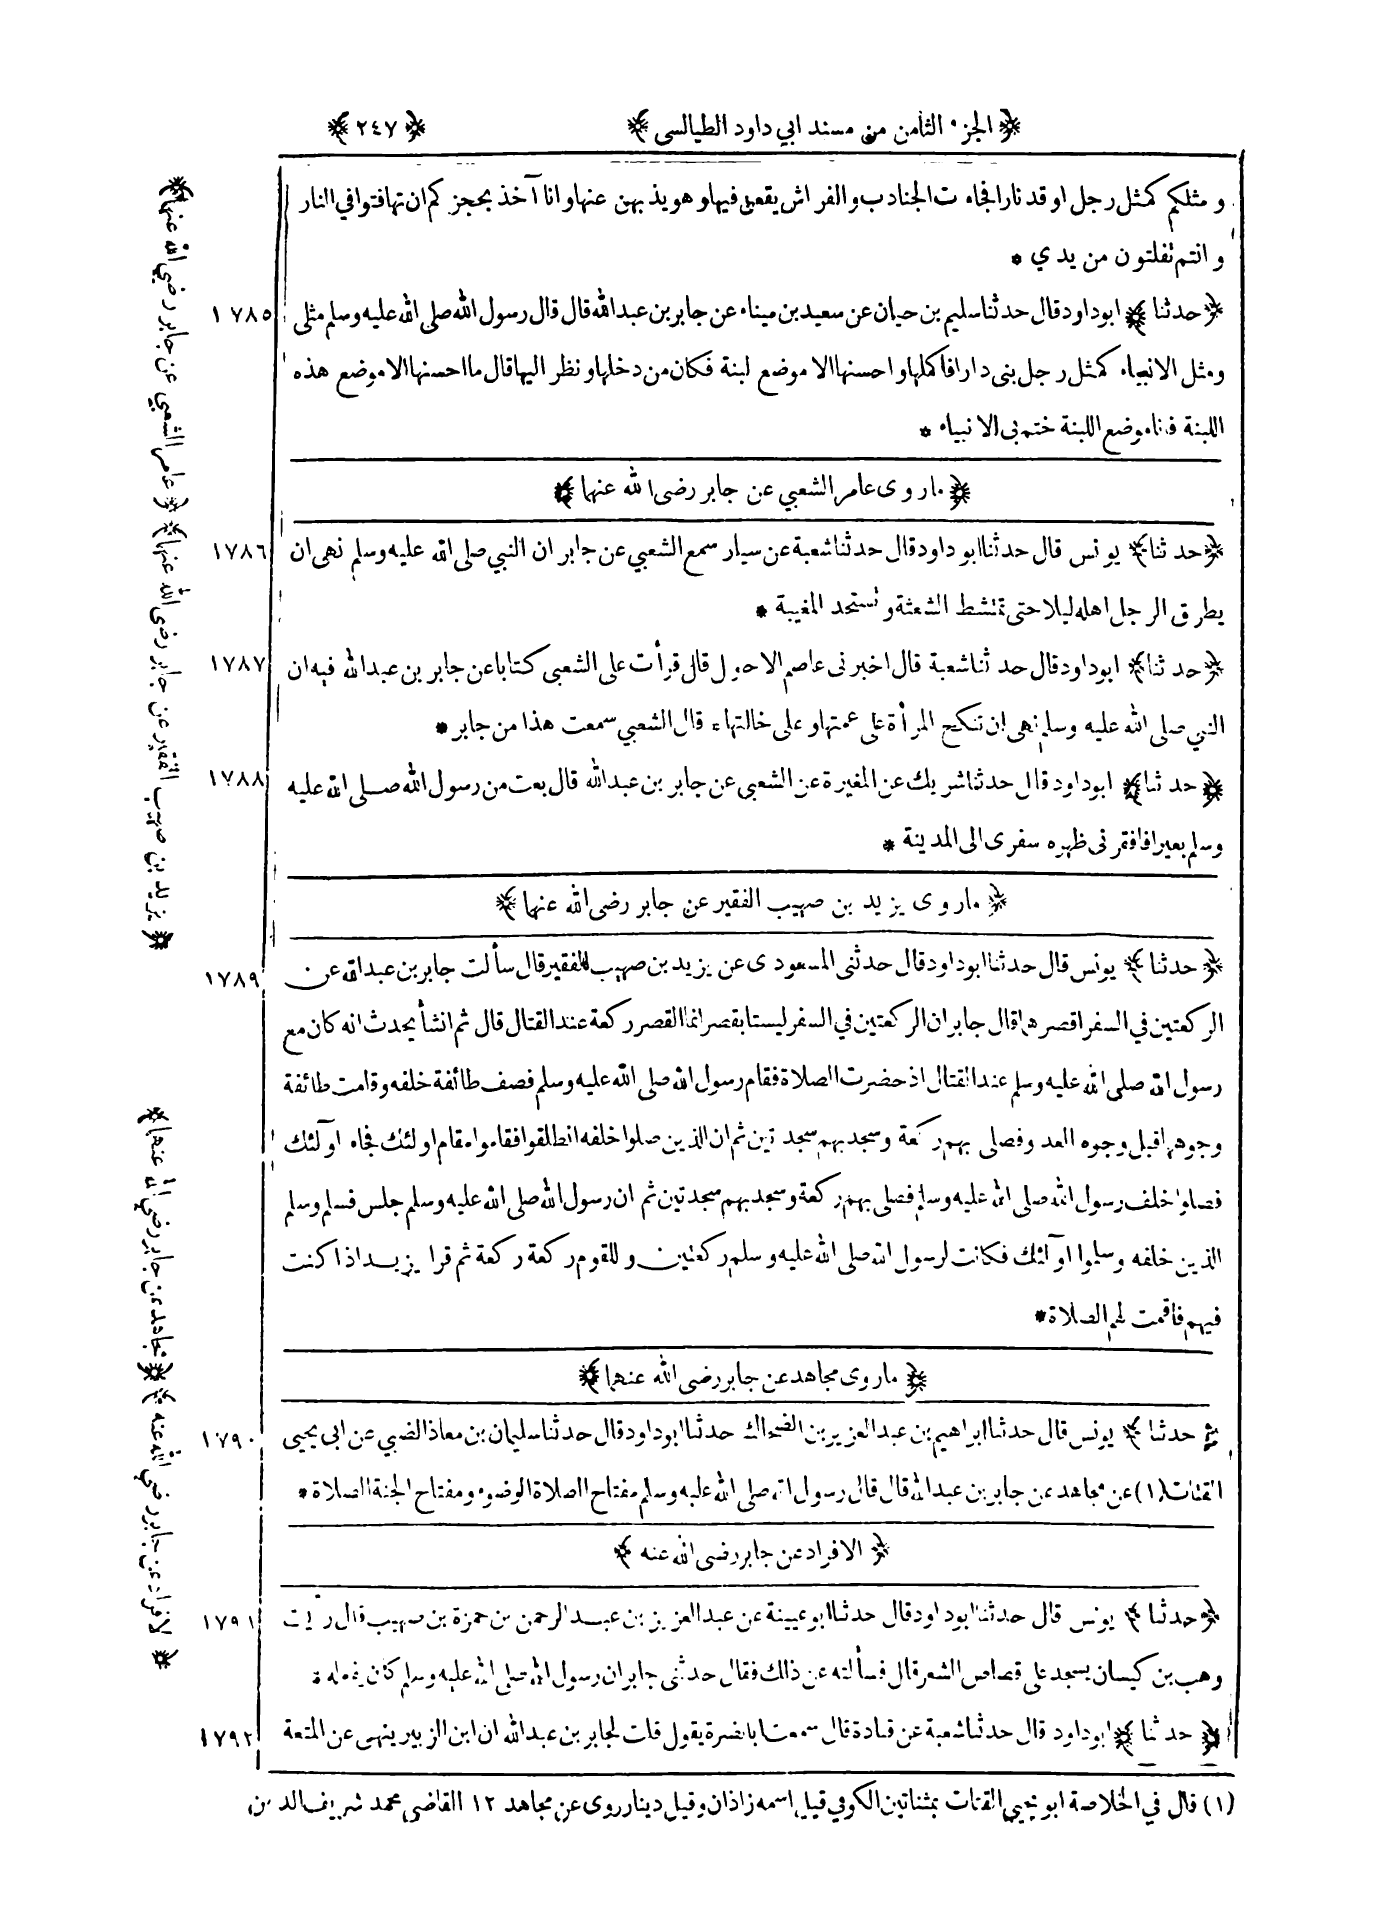 ﴿ الجزء الثامن من مسند ابي داود الطيالسى ﴾ ﴿ ٢٤٧ ﴾
و مثلكم كمثل رجل اوقد نارا فجاءت الجنادب والفراش يقعن فيها وهو يذبهن عنها وانا آخذ بحجزكم ان تهافتوا في النار
و انتم تفلتون من يدي *
١٧٨٥ ﴿ حدثنا ﴾ ابوداود قال حدثنا سليم بن حيان عن سعيد بن ميناء عن جابر بن عبد الله قال قال رسول الله صلى الله عليه وسلم مثلى
ومثل الانبياء كمثل رجل بنى دارا فاكملها واحسنها الا موضع لبنة فكان من دخلها ونظر اليها قال ما احسنها الا موضع هذه
اللبنة فانا موضع اللبنة ختم بى الانبياء *
﴿ ما روى عامر الشعبي عن جابر رضى الله عنهما ﴾
١٧٨٦ ﴿ حدثنا ﴾ يونس قال حدثنا ابو داود قال حدثنا شعبة عن سيار سمع الشعبي عن جابر ان النبي صلى الله عليه وسلم نهى ان
يطرق الرجل اهله ليلا حتى تمتشط الشعثة وتستحد المغيبة *
١٧٨٧ ﴿ حدثنا ﴾ ابوداود قال حدثنا شعبة قال اخبرنى عاصم الاحول قال قرأت على الشعبى كتابا عن جابر بن عبد الله فيه ان
النبي صلى الله عليه وسلم نهى ان تنكح المرأة على عمتها وعلى خالتها ء قال الشعبي سمعت هذا من جابر *
١٧٨٨ ﴿ حدثنا ﴾ ابوداود قال حدثنا شريك عن المغيرة عن الشعبى عن جابر بن عبد الله قال بعت من رسول الله صلى الله عليه
وسلم بعيرا فافقرنى ظهره سفرى الى المدينة *
﴿ ما روى يزيد بن صهيب الفقير عن جابر رضى الله عنهما ﴾
١٧٨٩ ﴿ حدثنا ﴾ يونس قال حدثنا ابوداود قال حدثنى المسعودى عن يزيد بن صهيب الفقير قال سألت جابر بن عبد الله عن
الركعتين في السفر اقصرهما قال جابر ان الركعتين في السفر ليستا بقصر انما القصر ركعة عند القتال قال ثم انشأ يحدث انه كان مع
رسول الله صلى الله عليه وسلم عند القتال اذ حضرت الصلاة فقام رسول الله صلى الله عليه وسلم فصف طائفة خلفه وقامت طائفة
وجوهها قبل وجوه العدو فصلى بهم ركعة وسجد بهم سجدتين ثم ان الذين صلوا خلفه انطلقوا فقاموا مقام اولئك فجاء اولئك
فصلوا خلف رسول الله صلى الله عليه وسلم فصلى بهم ركعة وسجد بهم سجدتين ثم ان رسول الله صلى الله عليه وسلم جلس فسلم وسلم
الذين خلفه وسلموا اولئك فكانت لرسول الله صلى الله عليه وسلم ركعتين وللقوم ركعة ركعة ثم قرا يزيد اذا كنت
فيهم فاقمت لهم الصلاة *
﴿ ما روى مجاهد عن جابر رضى الله عنهما ﴾
١٧٩٠ ﴿ حدثنا ﴾ يونس قال حدثنا ابراهيم بن عبد العزيز بن الضحاك حدثنا ابوداود قال حدثنا سليمان بن معاذ الضبي عن ابى يحيى
القتات (١) عن مجاهد عن جابر بن عبد الله قال قال رسول الله صلى الله عليه وسلم مفتاح الصلاة الوضوء ومفتاح الجنة الصلاة *
﴿ الافراد عن جابر رضى الله عنه ﴾
١٧٩١ ﴿ حدثنا ﴾ يونس قال حدثنا ابوداود قال حدثنا ابو عيينة عن عبد العزيز بن عبد الرحمن بن حمزة بن صهيب قال رأيت
وهب بن كيسان يسجد على قصاص الشعر قال فسألته عن ذلك فقال حدثنى جابر ان رسول الله صلى الله عليه وسلم كان يفعله *
١٧٩٢ ﴿ حدثنا ﴾ ابوداود قال حدثنا شعبة عن قتادة قال سمعت ابا نضرة يقول قلت لجابر بن عبد الله ان ابن الزبير ينهى عن المتعة
(١) قال في الخلاصة ابو يحيى القتات بمثناتين الكوفي قيل اسمه زاذان وقيل دينار روى عن مجاهد ١٢ القاضى محمد شريف الدين
﴿ عامر الشعبي عن جابر رضي الله عنهما ﴾
﴿ يزيد بن صهيب الفقير عن جابر رضى الله عنهما ﴾
﴿ مجاهد عن جابر رضي الله عنهما ﴾
﴿ الافراد عن جابر رضي الله عنه ﴾